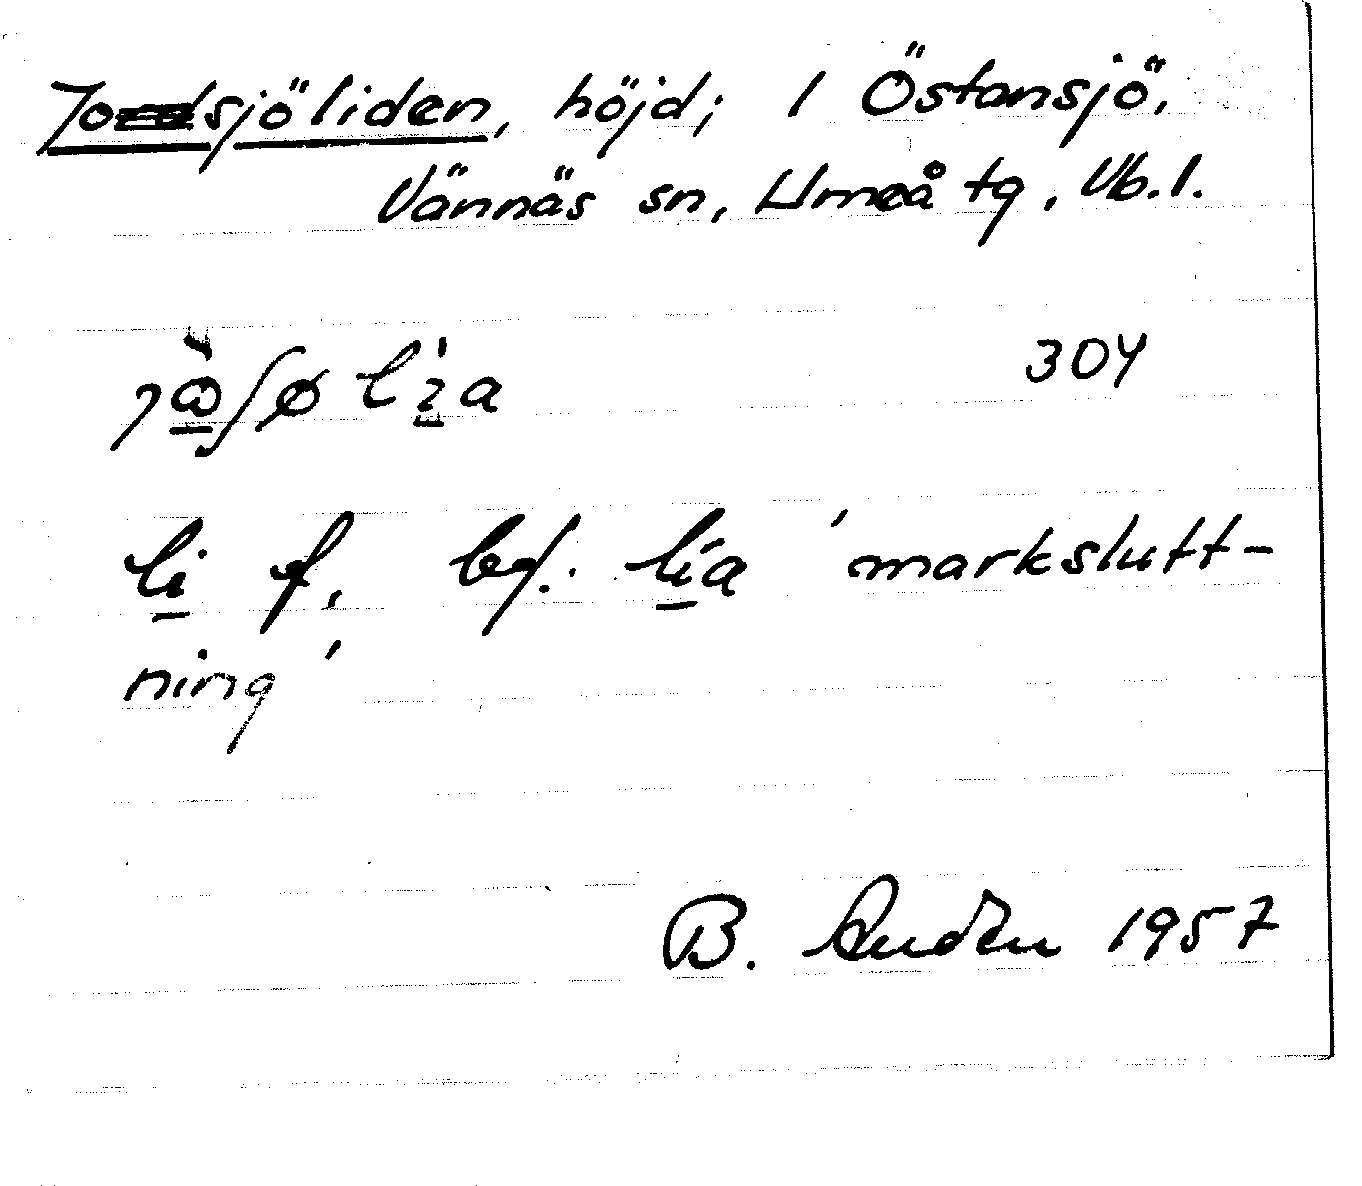 Josjöliden, höjd; i Östansjö,
Vännäs sn, Umeå tg, Vb. l.
304
li f, bf. lía 'markslutt-
ning'
B. Audén 1957